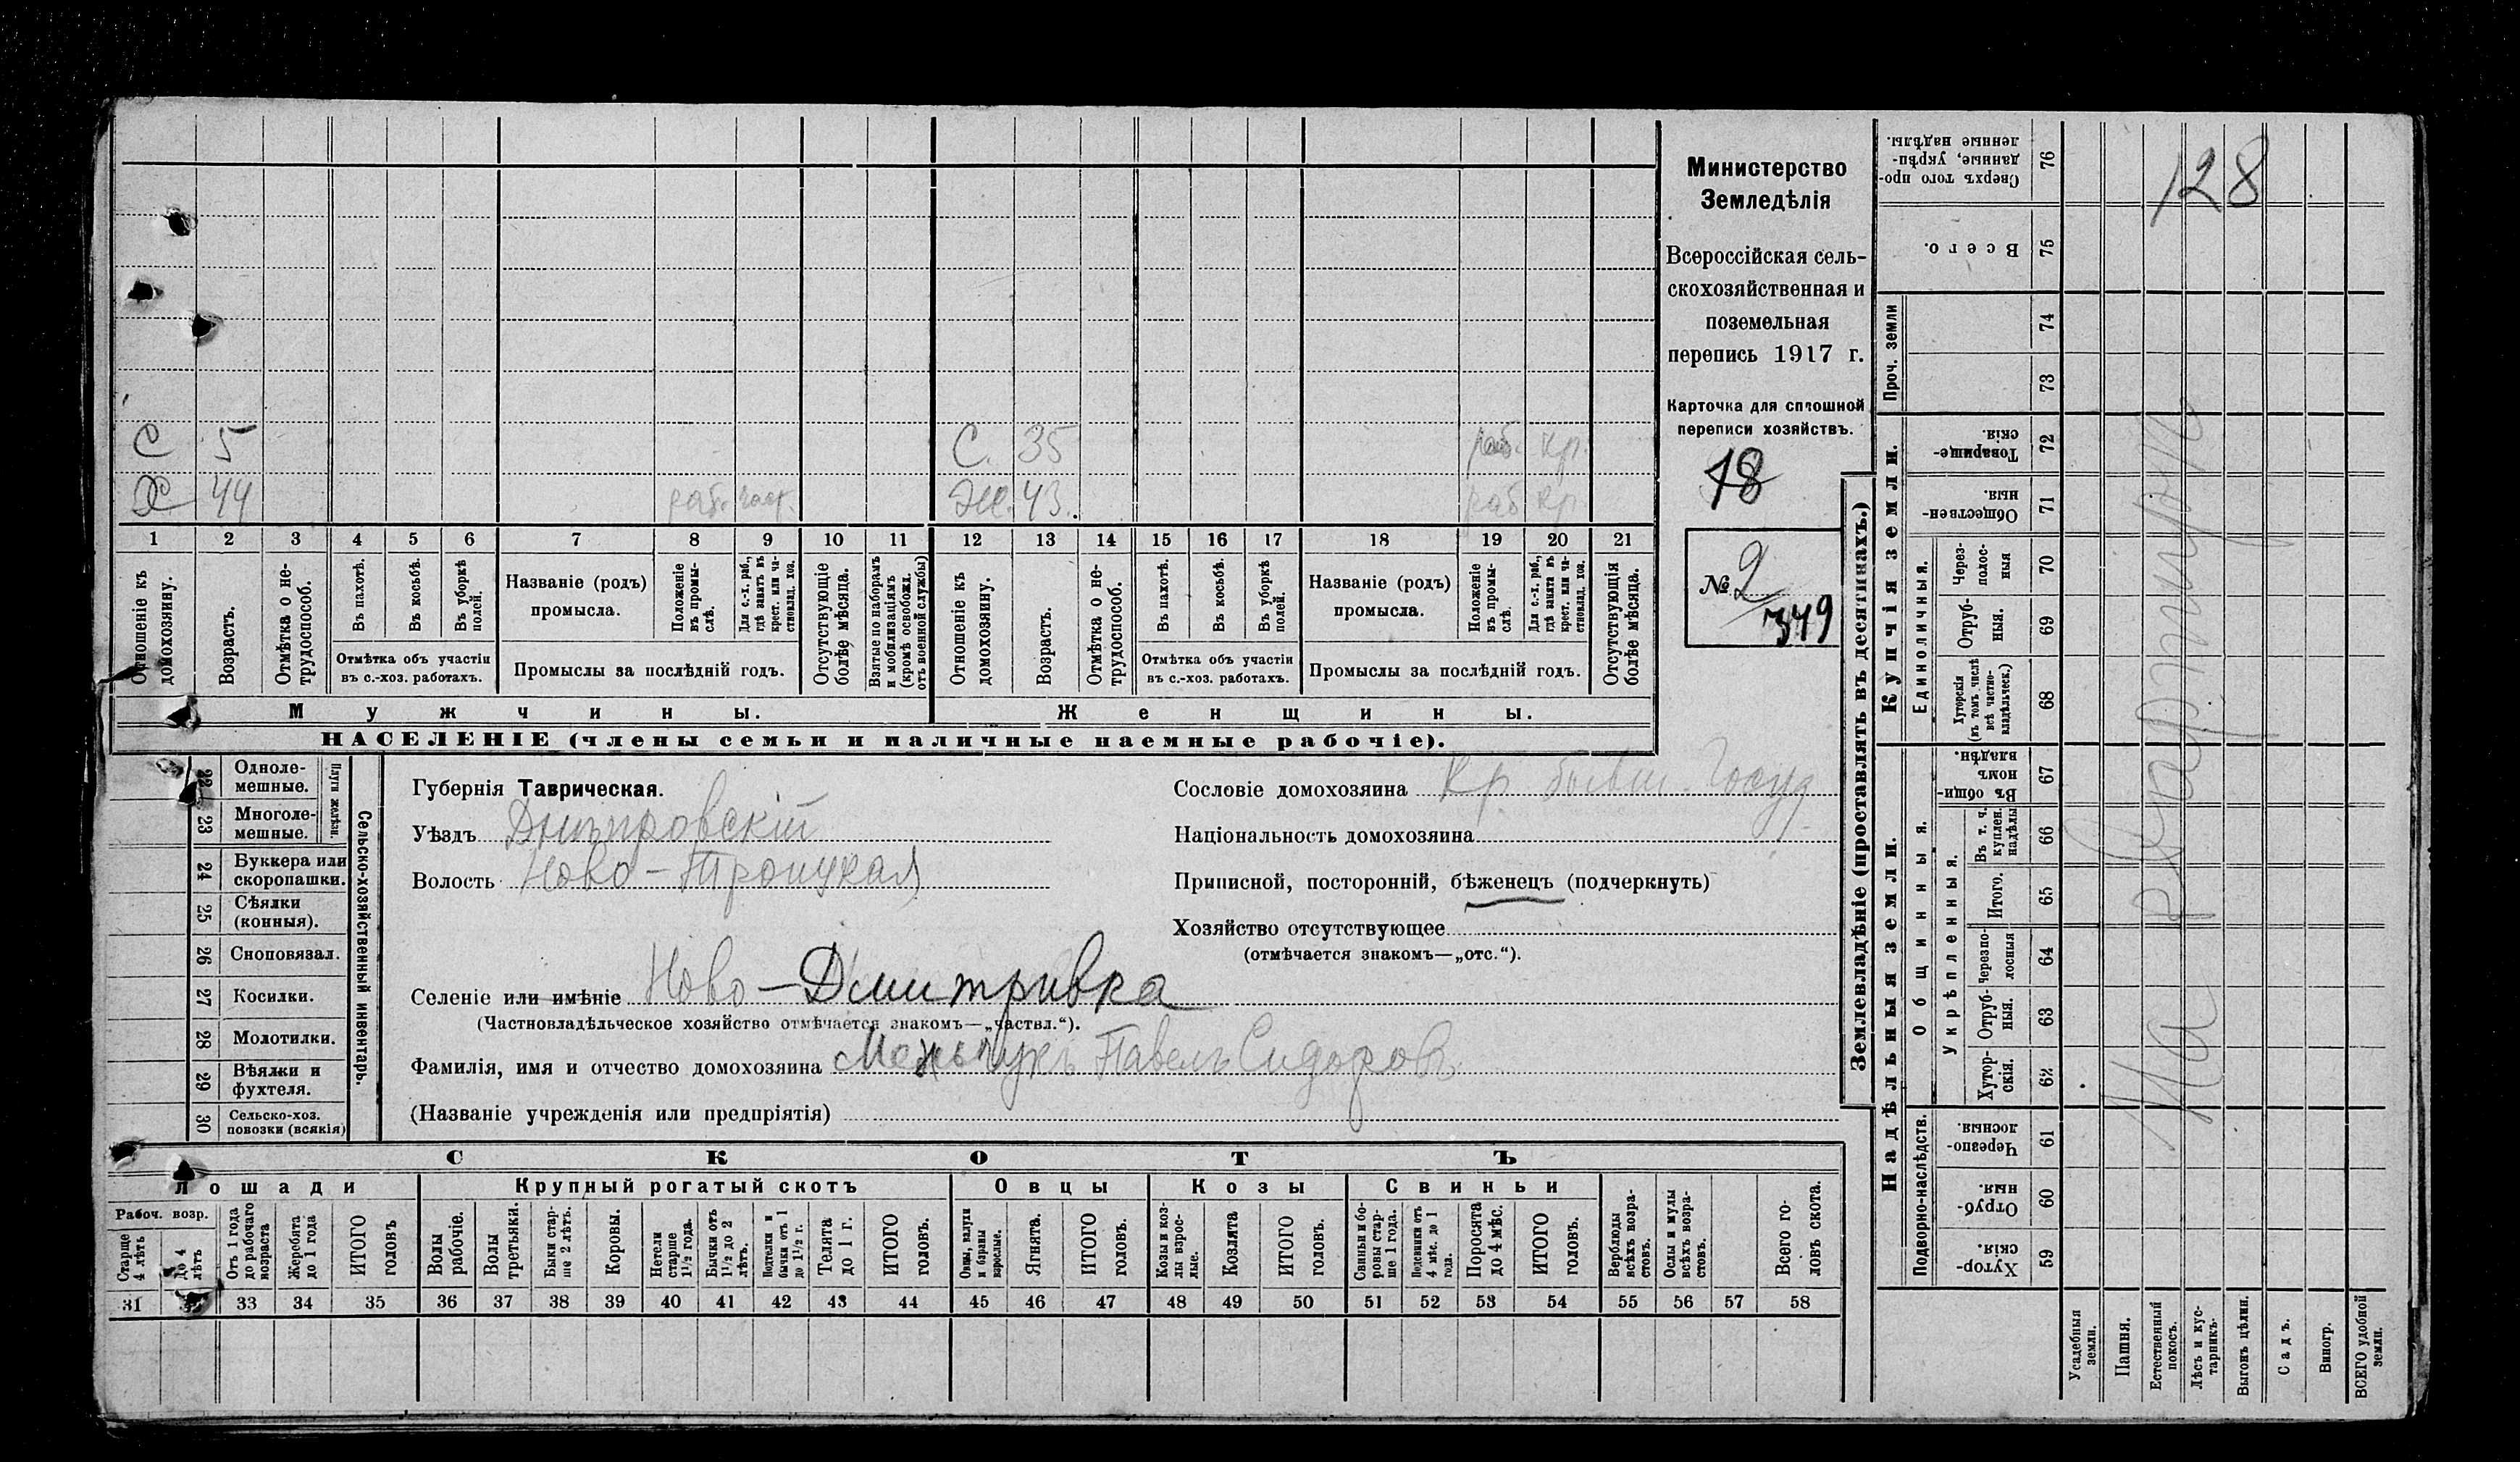 128
Министерство
Земледѣлія
Всероссійская сель-
скохозяйственная и
поземельная
перепись 1917 г.
Карточка для сплошной
переписи хозяйствъ.
18
№ 2
349
С 5 С. 35 раб. Кр.
Х 44 раб. част. Ж. 43. раб Кр.
1 2 3 4 5 6 7 8 9 10 11 12 13 14 15 16 17 18 19 20 21
Отношеніе къ домохозяину.
Возрастъ.
Отмѣтка о не-
трудоспособ.
Въ пахотѣ.
Въ косьбѣ.
Въ уборкѣ полей.
Отмѣтка объ участіи
въ с.-хоз. работахъ.
Названіе (родъ)
промысла.
Положеніе въ промы-
слѣ.
Для с.-х. раб., гдѣ занятъ въ крест. или ча-
стновлад. хоз.
Промыслы за послѣдній годъ.
Отсутствующіе болѣе мѣсяца.
Взятые по наборамъ и мобилизаціямъ (кромѣ освобожд. отъ военной службы)
Отношеніе къ домохозяину.
Возрастъ.
Отмѣтка о не-
трудоспособ.
Въ пахотѣ.
Въ косьбѣ.
Въ уборкѣ полей.
Отмѣтка объ участіи
въ с.-хоз. работахъ.
Названіе (родъ)
промысла.
Положеніе въ промы-
слѣ.
Для с.-х. раб., гдѣ занята въ крест. или ча-
стновлад. хоз.
Промыслы за послѣдній годъ.
Отсутствующія болѣе мѣсяца.
Мужчины.
Женщины.
НАСЕЛЕНІЕ (члены семьи и наличные наемные рабочіе).
22 Одноле-
мешные.
23 Многоле-
мешные.
Плуги желѣзн.
24 Буккера или
скоропашки.
25 Сѣялки
(конныя).
26 Сноповязал.
27 Косилки.
28 Молотилки.
29 Вѣялки и
фухтеля.
30 Сельско-хоз.
повозки (всякія)
Сельско-хозяйственный инвентарь.
Губернія Таврическая.
Уѣздъ Днѣпровскій
Волость Ново-Троицкая
Селеніе или имѣніе Ново-Дмитривка
(Частновладѣльческое хозяйство отмѣчается знакомъ—„частвл.“).
Фамилія, имя и отчество домохозяина Павелъ Сидоровъ
(Названіе учрежденія или предпріятія)
Сословіе домохозяина Кр. бывш. Госуд
Національность домохозяина
Приписной, посторонній, бѣженецъ (подчеркнуть)
Хозяйство отсутствующее
(отмѣчается знакомъ—„отс.“).
СКОТЪ
Лошади
Крупный рогатый скотъ
Овцы
Козы
Свиньи
Рабоч. возр.
Старше 4 лѣтъ
До 4 лѣтъ
Отъ 1 года до рабочаго возраста
Жеребята до 1 года
ИТОГО головъ
Волы рабочіе.
Волы третьяки.
Быки стар-
ше 2 лѣтъ.
Коровы.
Нетели старше 1½ года.
Бычки отъ 1½ до 2 лѣтъ.
Подтелки и бычки отъ 1 до 1½ г.
Телята до 1 г.
ИТОГО головъ.
Овцы, валухи и бараны взрослые.
Ягнята.
ИТОГО головъ.
Козы и коз-
лы взрос-
лые.
Козлята
ИТОГО головъ.
Свиньи и бо-
ровы стар-
ше 1 года.
Подсвинки отъ 4 мѣс. до 1 года.
Поросята до 4 мѣс.
ИТОГО головъ.
Верблюды всѣхъ возра-
стовъ.
Ослы и мулы всѣхъ возра-
стовъ.
Всего го-
ловъ скота.
31 33 34 35 36 37 38 39 40 41 42 43 44 45 46 47 48 49 50 51 52 53 54 55 56 57 58
Землевладѣніе (проставлять въ десятинахъ.)
Надѣльныя земли.
Купчія земли.
Проч. земли
Подворно-наслѣдств.
Общинныя.
Укрѣпленныя.
Единоличныя.
Сверхъ того про-
данные, укрѣп-
ленные надѣлы. 76
Всего. 75
74
73
Товарище-
скія. 72
Обществен-
ныя. 71
Через-
полос-
ныя 70
Отруб-
ныя. 69
Хуторскія (въ томъ числѣ всѣ частно-
владѣльческ.) 68
Въ общин-
номъ владѣн. 67
Въ т. ч. куплен. надѣлы 66
Итого. 65
Черезпо-
лосныя 64
Отруб-
ныя. 63
Хутор-
скія. 62
Черезпо-
лосныя. 61
Отруб-
ныя. 60
Хутор-
скія. 59
Усадебныя земли.
Пашня.
Естественный покосъ.
Лѣсъ и кус-
тарникъ.
Выгонъ цѣлин.
Садъ.
Виногр.
ВСЕГО удобной земли.
На квартирѣ